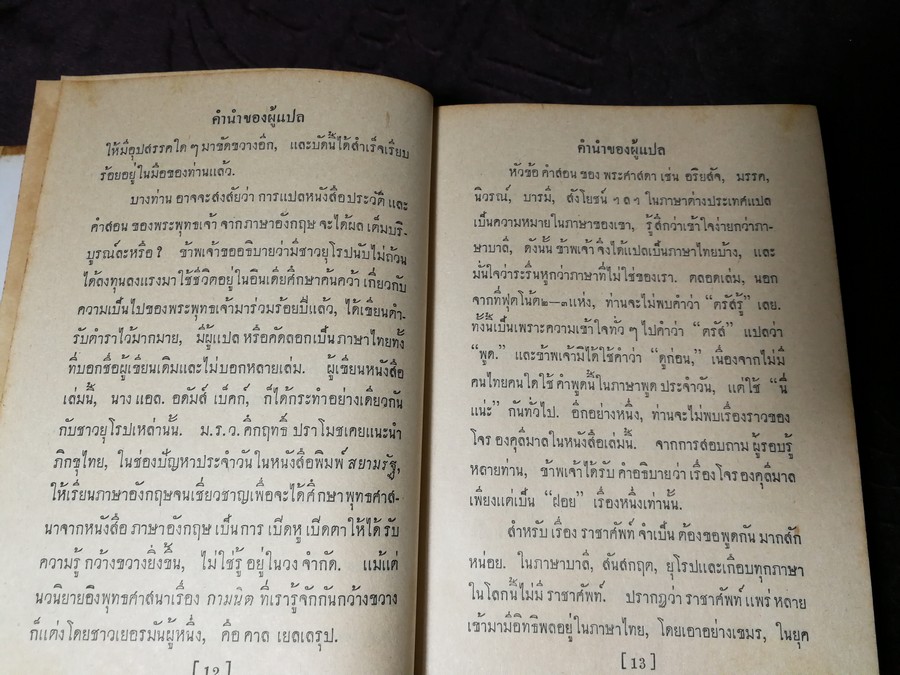 คำนำของผู้แปล
ให้มีอุปสรรคใด ๆ มาขัดขวางอีก, และบัดนี้ได้สำเร็จเรียบ
ร้อยอยู่ในมือของท่านแล้ว.
บางท่าน อาจจะสงสัยว่า การแปลหนังสือ ประวัติ และ
คำสอน ของพระพุทธเจ้า จากภาษาอังกฤษ จะได้ผล เต็มบริ-
บูรณ์ละหรือ? ข้าพเจ้าขออธิบายว่ามีชาวยุโรปนับไม่ถ้วน
ได้ลงทุนลงแรงมาใช้ชีวิตอยู่ในอินเดียศึกษาค้นคว้า เกี่ยวกับ
ความเป็นไปของพระพุทธเจ้ามาร่วมร้อยปีแล้ว, ได้เขียนตำ-
รับตำราไว้มากมาย, มีผู้แปล หรือคัดลอกเป็น ภาษาไทยทั้ง
ที่บอกชื่อผู้เขียนเดิมและไม่บอกหลายเล่ม. ผู้เขียนหนังสือ
เล่มนี้, นาง แอล. อดัมส์ เบ็คก์, ก็ได้กระทำอย่างเดียวกัน
กับชาวยุโรปเหล่านั้น. ม.ร.ว. คึกฤทธิ์ ปราโมชเคยแนะนำ
ภิกขุไทย, ในช่องปัญหาประจำวันในหนังสือพิมพ์ สยามรัฐ,
ให้เรียนภาษาอังกฤษจนเชี่ยวชาญเพื่อจะได้ศึกษาพุทธศาส-
นาจากหนังสือ ภาษาอังกฤษ เป็นการ เปิดหู เปิดตา ให้ได้ รับ
ความรู้ กว้างขวางยิ่งขึ้น, ไม่ใช่รู้ อยู่ในวง จำกัด. แม้แต่
นวนิยายอิงพุทธศาสนาเรื่อง กามนิต ที่เรารู้จักกันกว้างขวาง
ก็แต่ง โดยชาวเยอรมันผู้หนึ่ง, คือ คาล เยลเลรุป.
[12]
คำนำของผู้แปล
หัวข้อ คำสอน ของ พระศาสดา เช่น อริยสัจ, มรรค,
นิวรณ์, บารมี, สังโยชน์ ฯลฯ ในภาษาต่างประเทศแปล
เป็นความหมายในภาษาของเขา, รู้สึกว่าเข้าใจง่ายกว่าภา-
ษาบาลี, ดังนั้น ข้าพเจ้า จึงได้แปลเป็นภาษาไทยบ้าง, และ
มั่นใจว่าระรื่นหูกว่าภาษาที่ไม่ใช่ของเรา. ตลอดเล่ม, นอก
จากที่ฟุตโน้ต๒—๓แห่ง, ท่านจะไม่พบคำว่า “ตรัสรู้” เลย.
ทั้งนี้เป็นเพราะความเข้าใจทั่ว ๆ ไปคำว่า “ตรัส” แปลว่า
“พูด.” และข้าพเจ้ามิได้ใช้คำว่า “ดูก่อน,” เนื่องจากไม่มี
คนไทยคนใดใช้ คำพูดนี้ในภาษาพูด ประจำวัน, แต่ใช้ “นี่
แน่ะ” กันทั่วไป. อีกอย่างหนึ่ง, ท่านจะไม่พบเรื่องราวของ
โจร องคุลีมาลในหนังสือเล่มนี้. จากการสอบถาม ผู้รอบรู้
หลายท่าน, ข้าพเจ้าได้รับ คำอธิบายว่า เรื่อง โจร องคุลีมาล
เพียงแต่เป็น “ฝอย” เรื่องหนึ่งเท่านั้น.
สำหรับ เรื่อง ราชาศัพท์ จำเป็น ต้องขอพูดกัน มากสัก
หน่อย. ในภาษาบาลี, สันสกฤต, ยุโรปและเกือบทุกภาษา
ในโลกนี้ไม่มี ราชาศัพท์. ปรากฏว่า ราชาศัพท์ แพร่ หลาย
เข้ามามีอิทธิพลอยู่ในภาษาไทย, โดยเอาอย่างเขมร, ในยุค
[13]